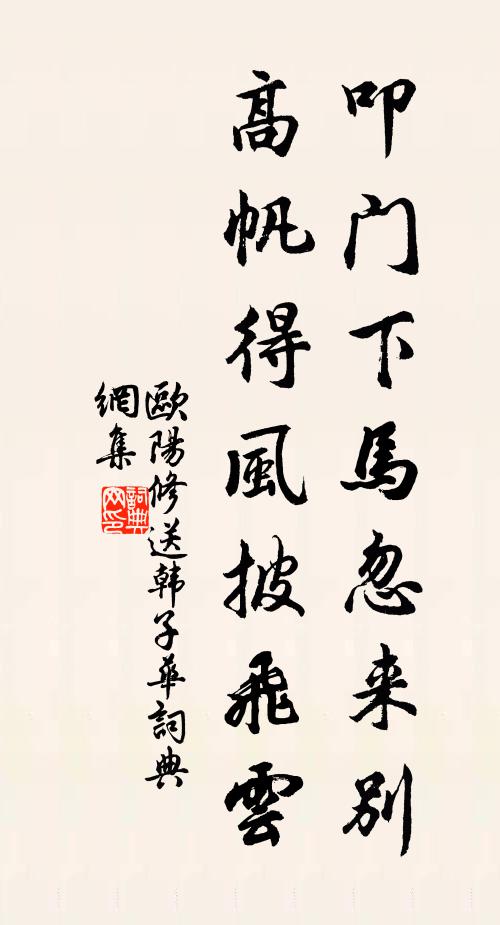 叩门下馬忽来别
高帆得風披飛雲
歐陽修送韩子華詞典
網集
詞典
网印